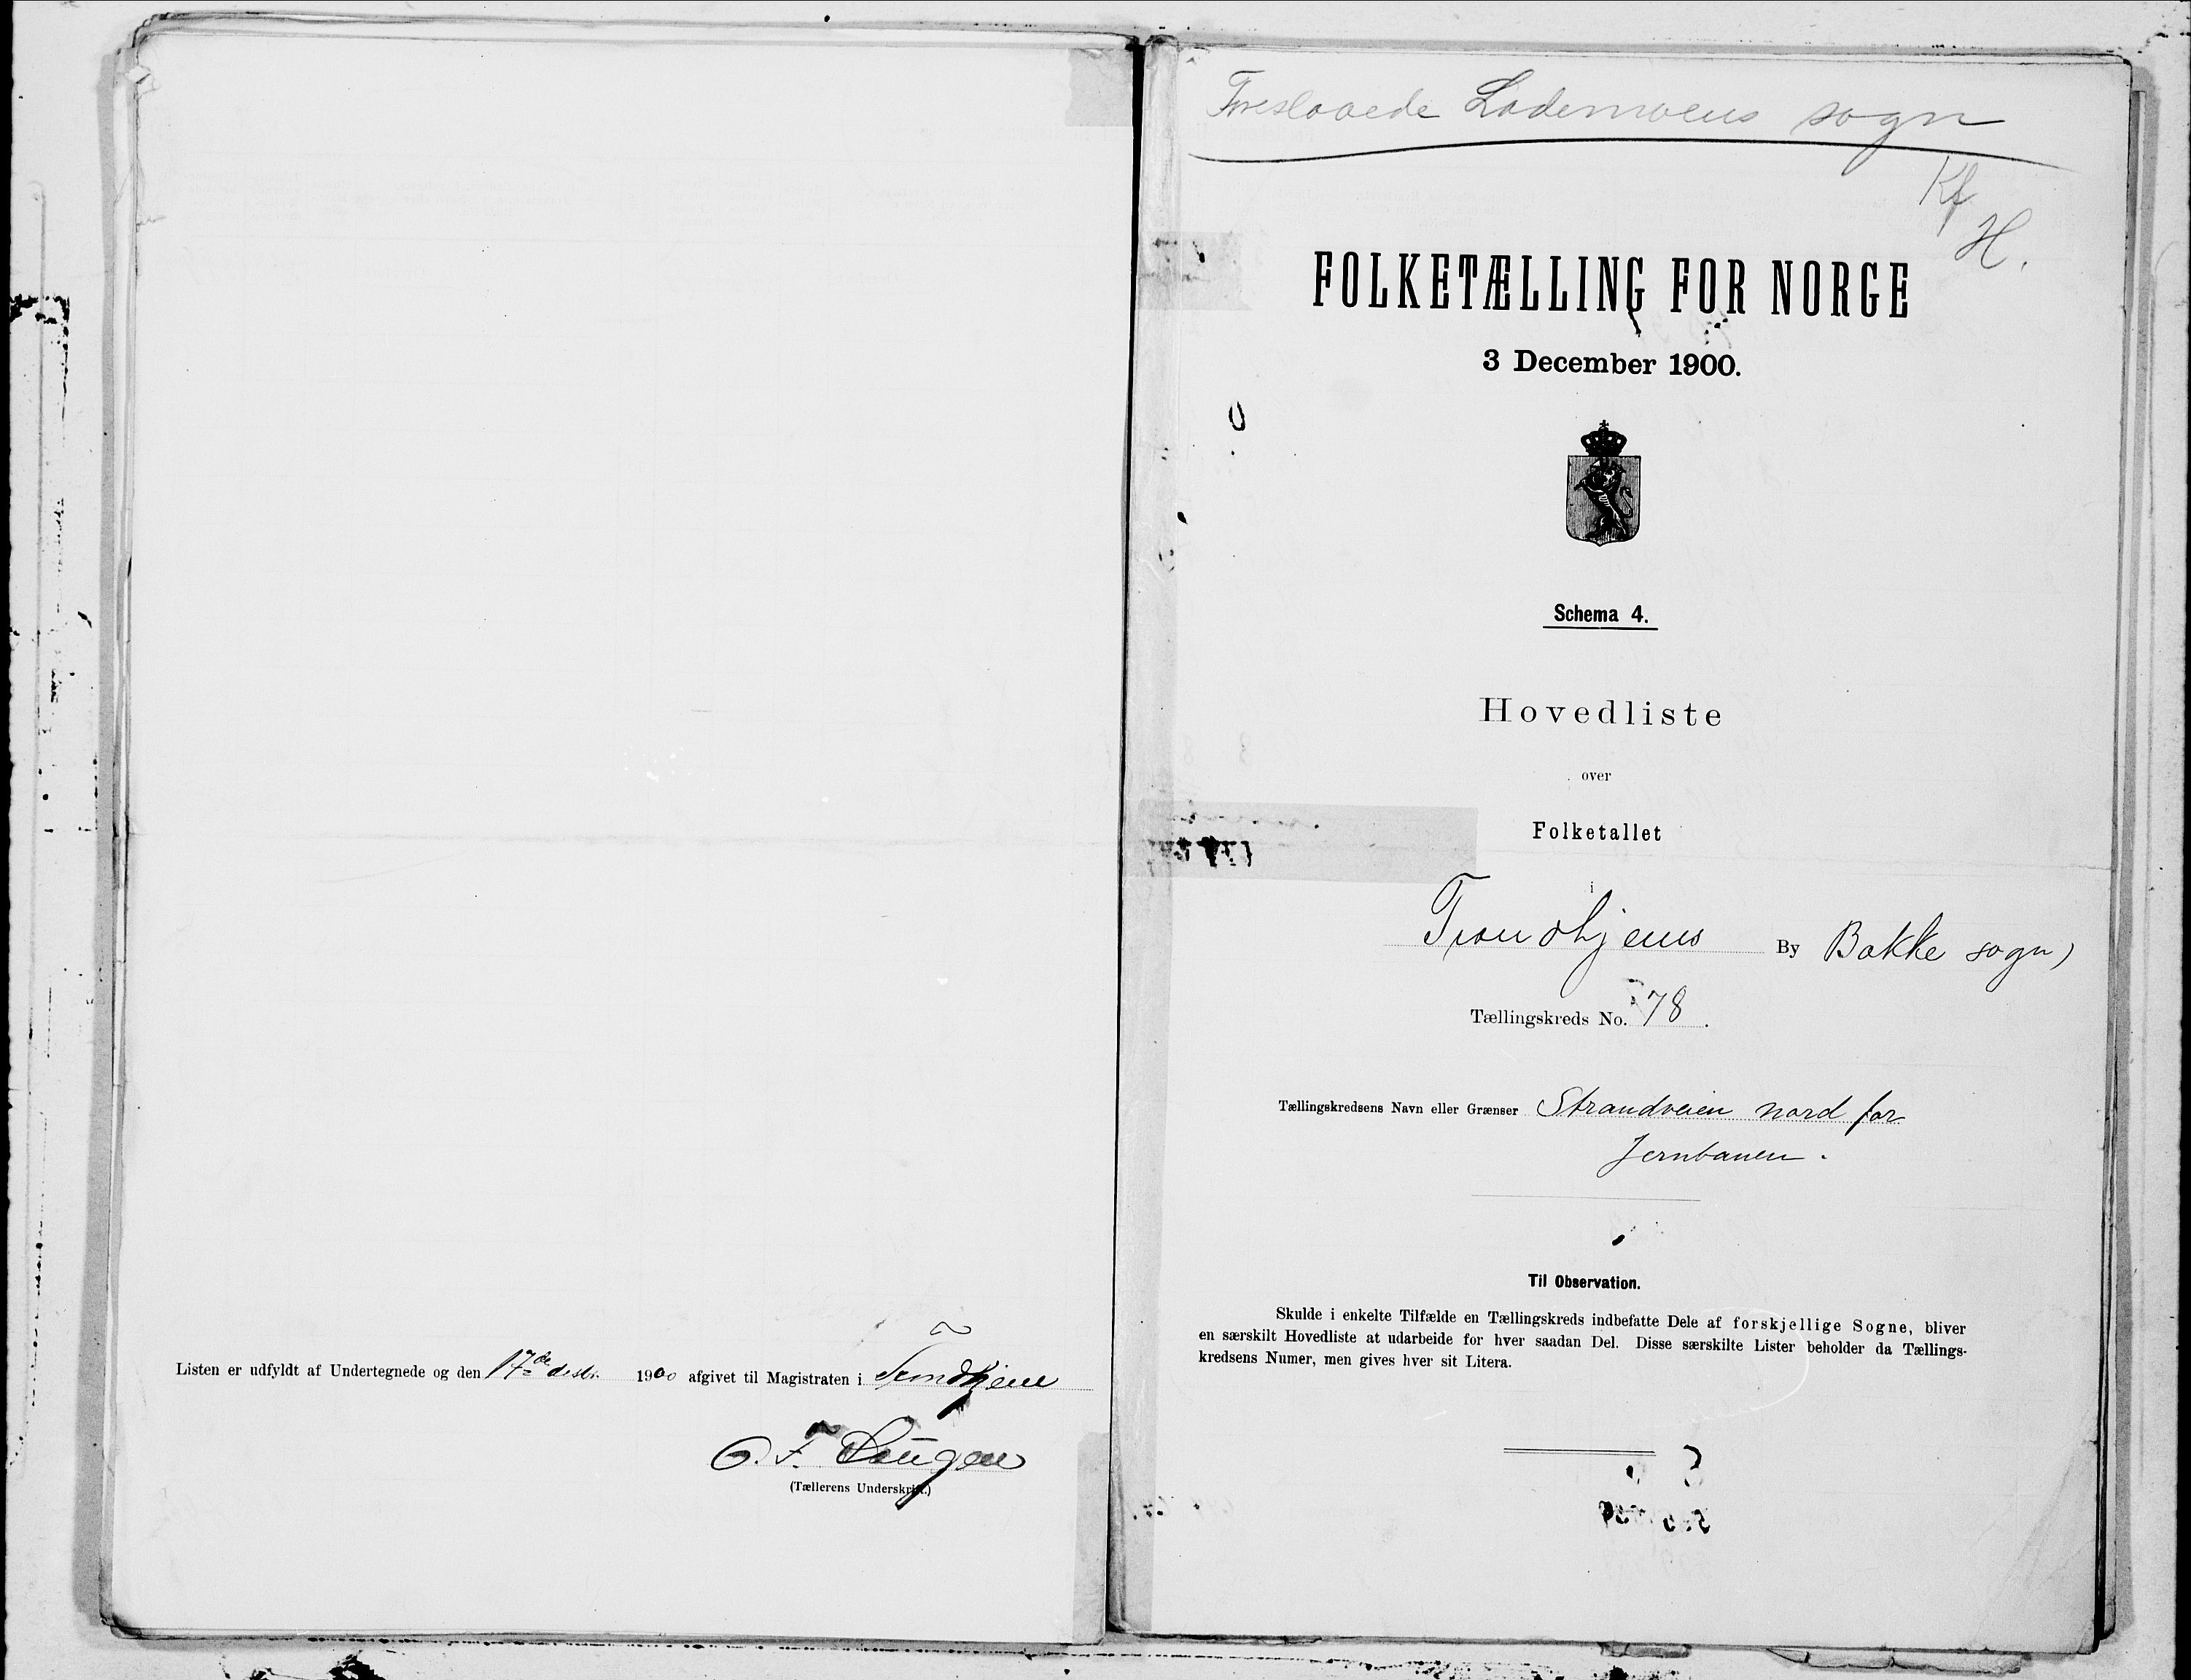 Listen er udfyldt af Undertegnede og den 17de desbr. 1900 afgivet til Magistraten i Trondhjem
O. F. Haugen
(Tællerens Underskrift.)
Foreslaaede Lademoens sogn
Kf
H.
FOLKETÆLLING FOR NORGE
3 December 1900.
Schema 4.
Hovedliste
over
Folketallet
i
Trondhjems By Bakke sogn)
Tællingskreds No. 78.
Tællingskredsens Navn eller Grænser Strandveien nord for
Jernbanen.
Til Observation.
Skulde i enkelte Tilfælde en Tællingskreds indbefatte Dele af forskjellige Sogne, bliver
en særskilt Hovedliste at udarbeide for hver saadan Del. Disse særskilte Lister beholder da Tællings-
kredsens Numer, men gives hver sit Litera.